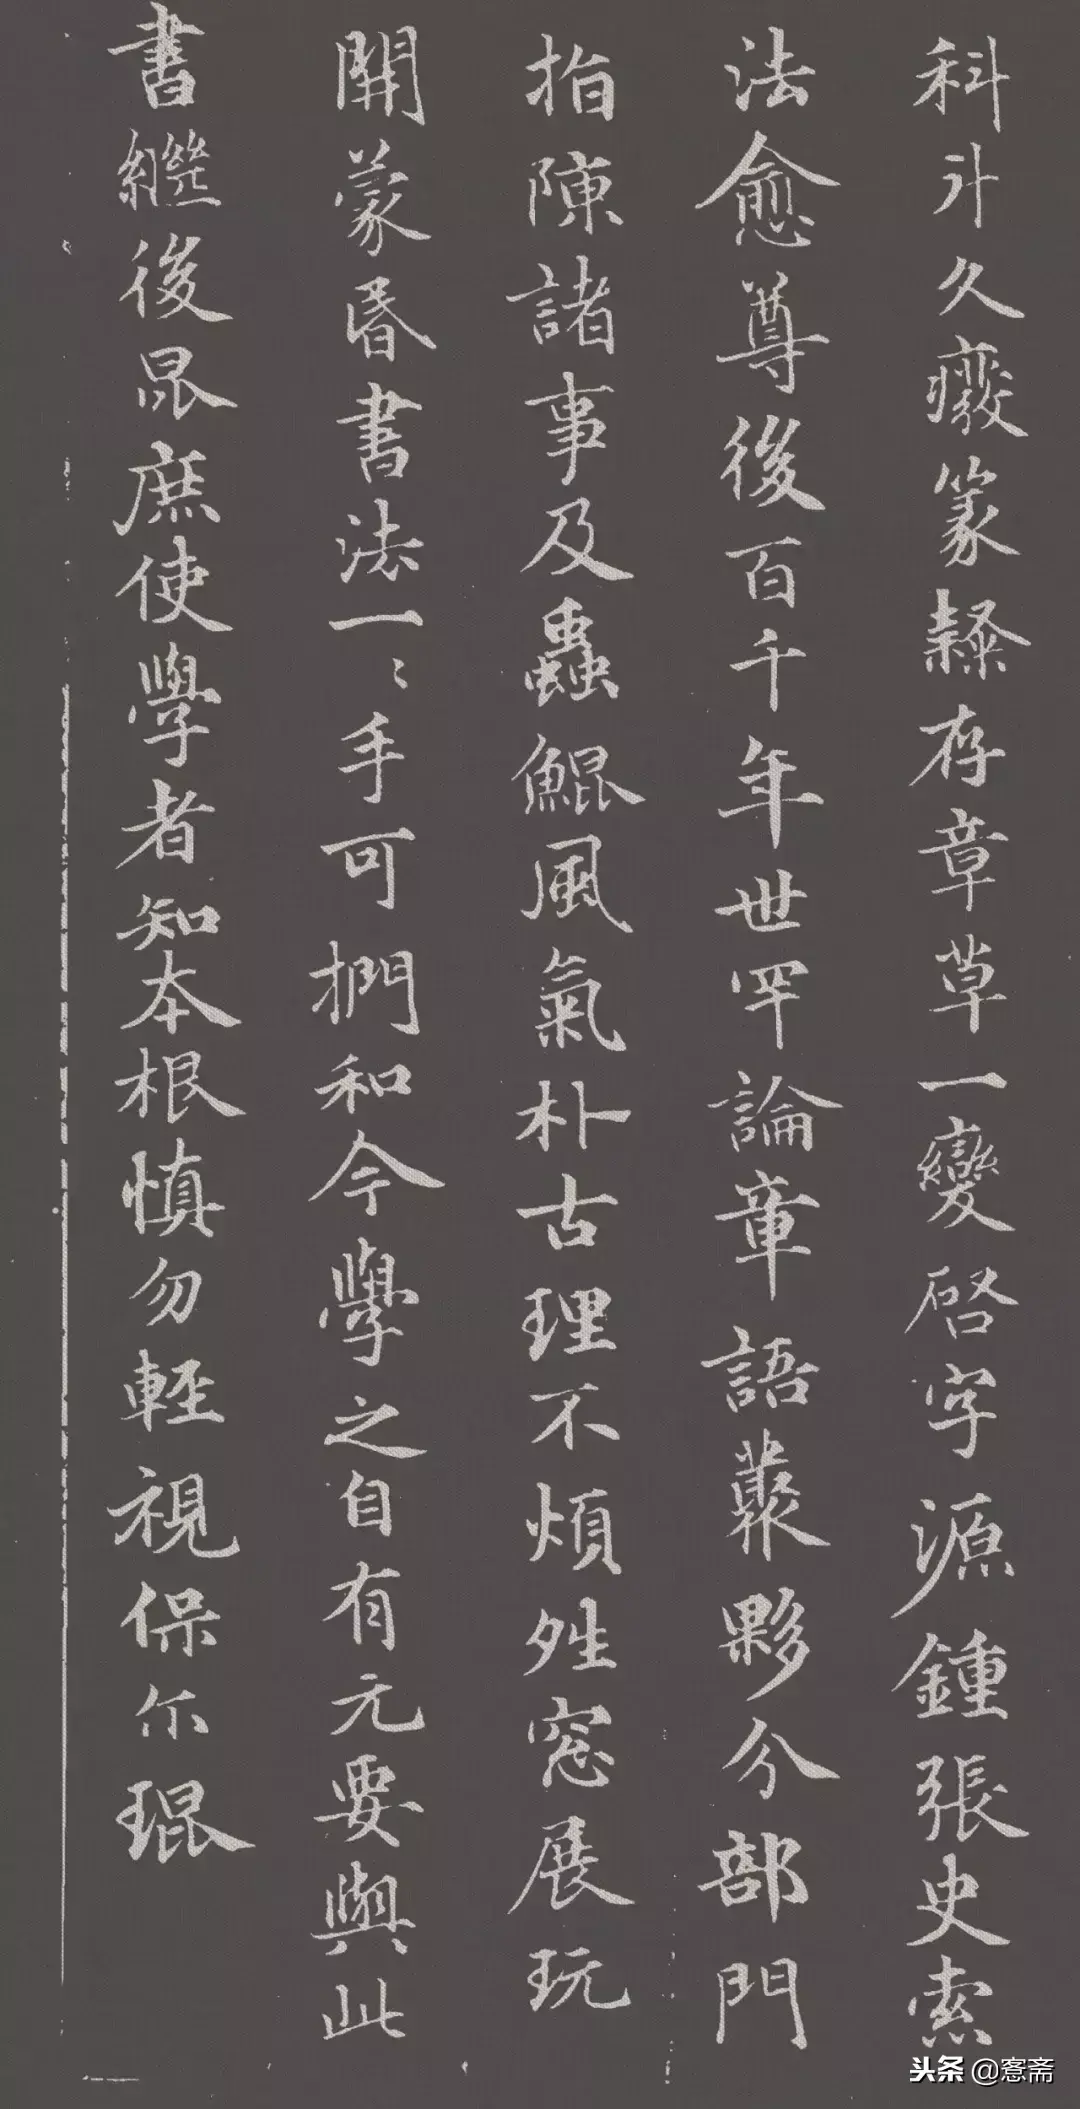 科斗久癈篆隸存章草一變啓字源鍾張史索
法愈尊後百千年世罕論章語叢夥分部門
指陳諸事及蟲鯤風氣朴古理不煩姓窓展玩
開蒙昏書法一〻手可捫和今學之自有元要與此
書繼後昆庶使學者知本根慎勿輕視保尓琨
头条 @窓斋